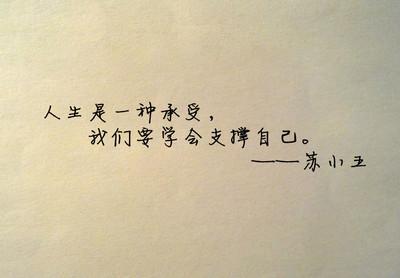 人生是一种承受，
我们要学会支撑自己。
——苏小五